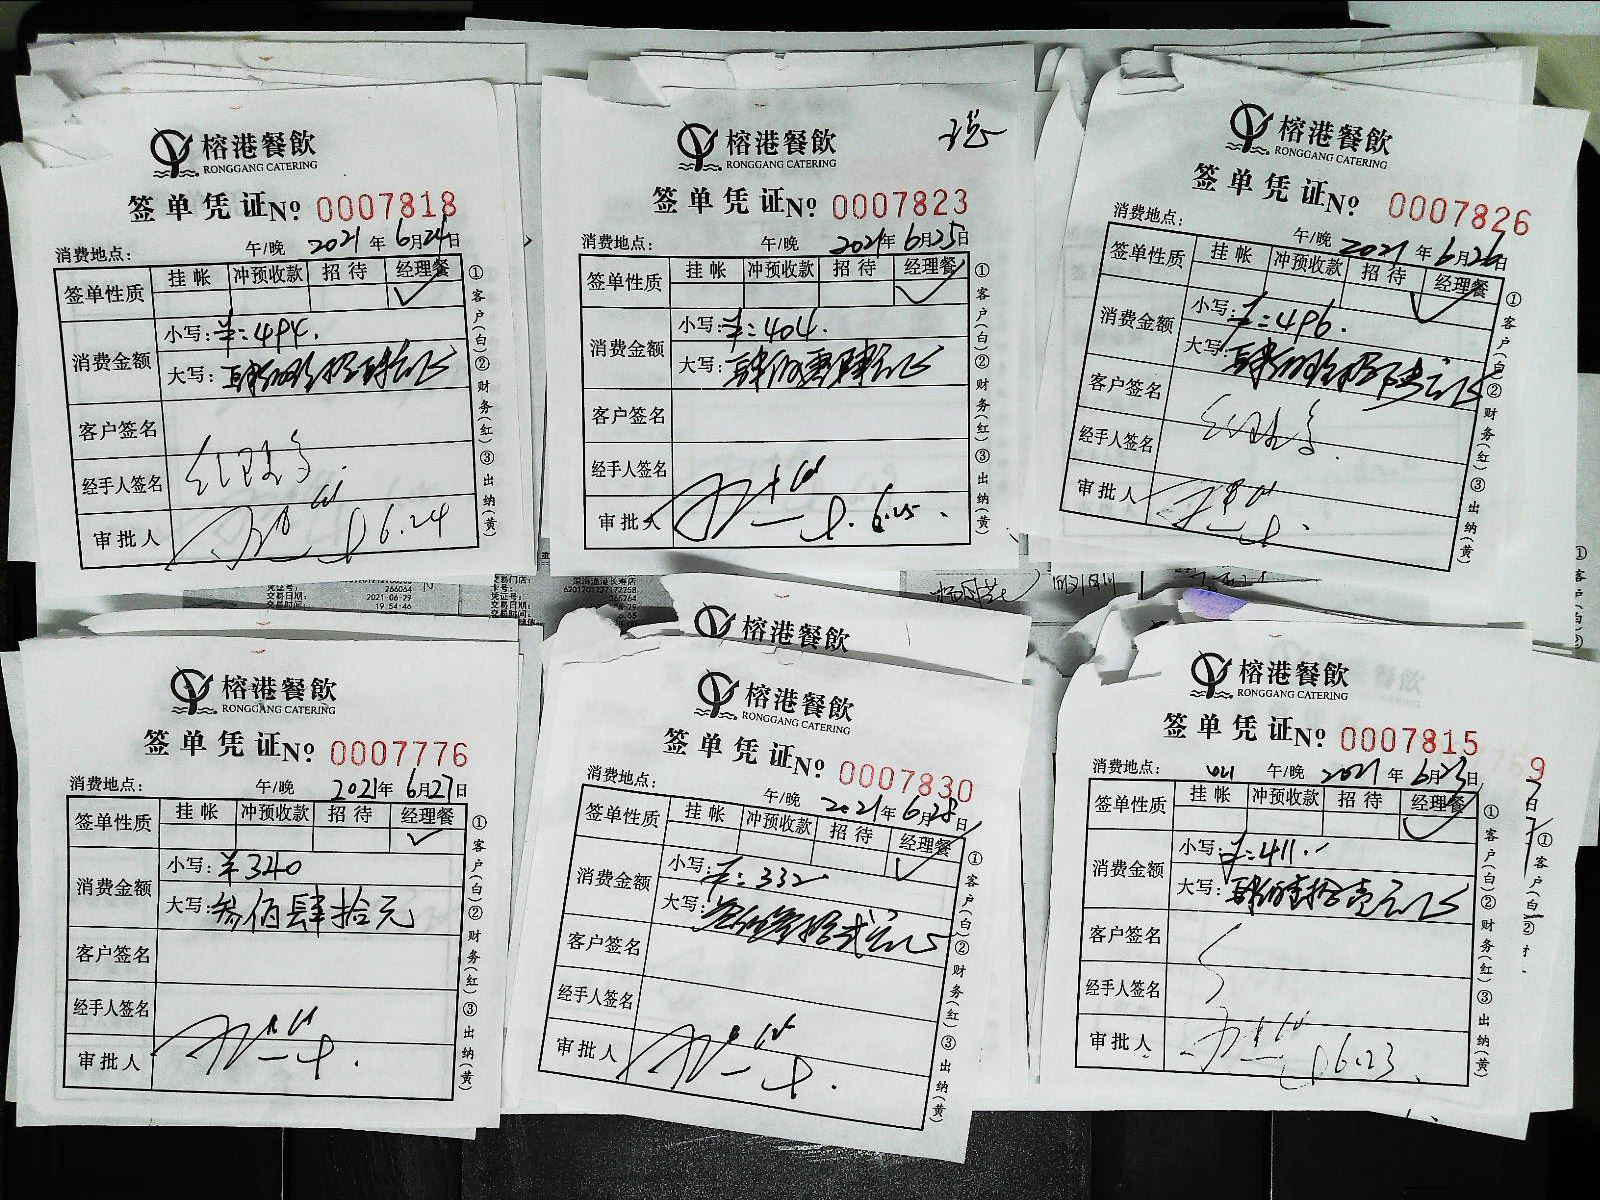 榕港餐飲
RONGGANG CATERING
签单凭证№ 0007818
消费地点: 午/晚 2021年6月24日
签单性质 挂帐 冲预收款 招待 经理餐
消费金额 小写:¥:494.
大写:肆佰玖拾肆元正
客户签名
经手人签名
审批人 6.24
①客户(白)②财务(红)③出纳(黄)
榕港餐飲
RONGGANG CATERING
签单凭证№ 0007823
消费地点: 午/晚 2021年6月25日
签单性质 挂帐 冲预收款 招待 经理餐
消费金额 小写:¥:404.
大写:肆佰零肆元正
客户签名
经手人签名
审批人 6.25.
①客户(白)②财务(红)③出纳(黄)
榕港餐飲
RONGGANG CATERING
签单凭证№ 0007826
消费地点: 午/晚 2021年6月26日
签单性质 挂帐 冲预收款 招待 经理餐
消费金额 小写:¥:496.
大写:肆佰玖拾陆元正
客户签名
经手人签名
审批人
①客户(白)②财务(红)③出纳(黄)
266064
交易日期: 2021-06-29
交易时间: 19:54:46
榕港餐飲
榕港餐飲
RONGGANG CATERING
签单凭证№ 0007776
消费地点: 午/晚 2021年6月27日
签单性质 挂帐 冲预收款 招待 经理餐
消费金额 小写:¥340
大写:叁佰肆拾元
客户签名
经手人签名
审批人
①客户(白)②财务(红)③出纳(黄)
榕港餐飲
RONGGANG CATERING
签单凭证№ 0007830
消费地点: 午/晚 2021年6月28日
签单性质 挂帐 冲预收款 招待 经理餐
消费金额 小写:¥:332
大写:叁佰叁拾贰元正
客户签名
经手人签名
审批人
①客户(白)②财务(红)③出纳(黄)
榕港餐飲
RONGGANG CATERING
签单凭证№ 0007815
消费地点: 午/晚 2021年6月23日
签单性质 挂帐 冲预收款 招待 经理餐
消费金额 小写:¥:411.
大写:肆佰壹拾壹元正
客户签名
经手人签名
审批人 6.23
①客户(白)②财务(红)③出纳(黄)
9
日
①客户(白)②